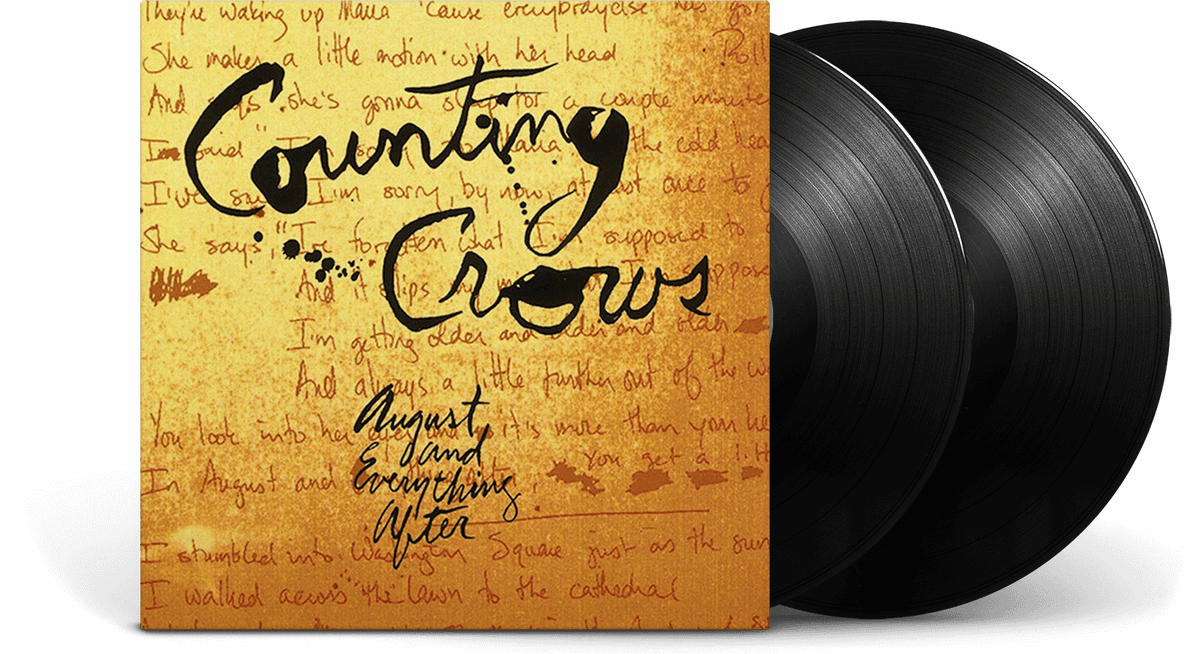 They're waking up Maria 'cause everybody else has got
She makes a little motion with her head Roll
And says she's gonna sleep for a couple minute
Counting
I said "I'm sorry Maria the cold hea
I've sa I'm sorry, by now, at least once to
Crows
She says, "I've forgotten what I'm supposed to
And it slips my m I'm suppose
I'm getting older and older and older
And always a little further out of the w
August
You look into her eyes and it's more than your he
and
Everything
In August and You get a litt
After
I stumbled into Washington Square just as the sun
I walked across the lawn to the cathedral